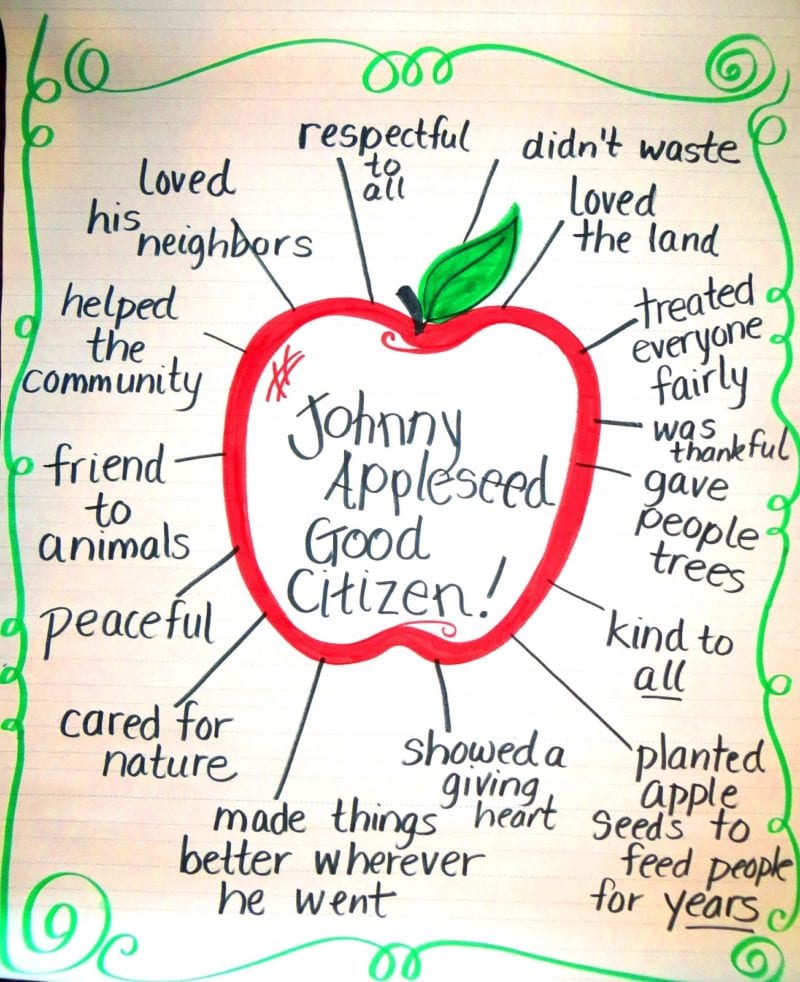 Johnny
Appleseed
Good
Citizen!
respectful
to
all
didn't waste
loved
the land
treated
everyone
fairly
was
thankful
gave
people
trees
kind to
all
planted
apple
seeds to
feed people
for years
showed a
giving
heart
made things
better wherever
he went
cared for
nature
peaceful
friend
to
animals
helped
the
community
loved
his
neighbors